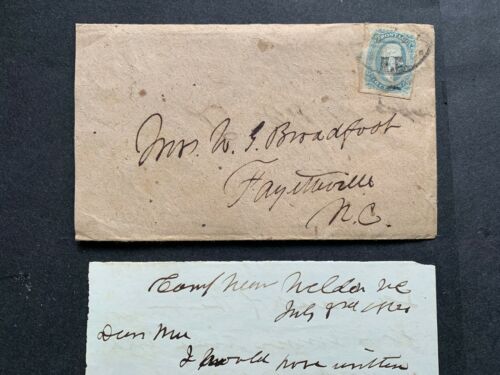 Mrs. W. G. Broadfoot
Fayetteville
N.C.
Camp Near Weldon NC
July 3rd
Dear Mrs
I would have written